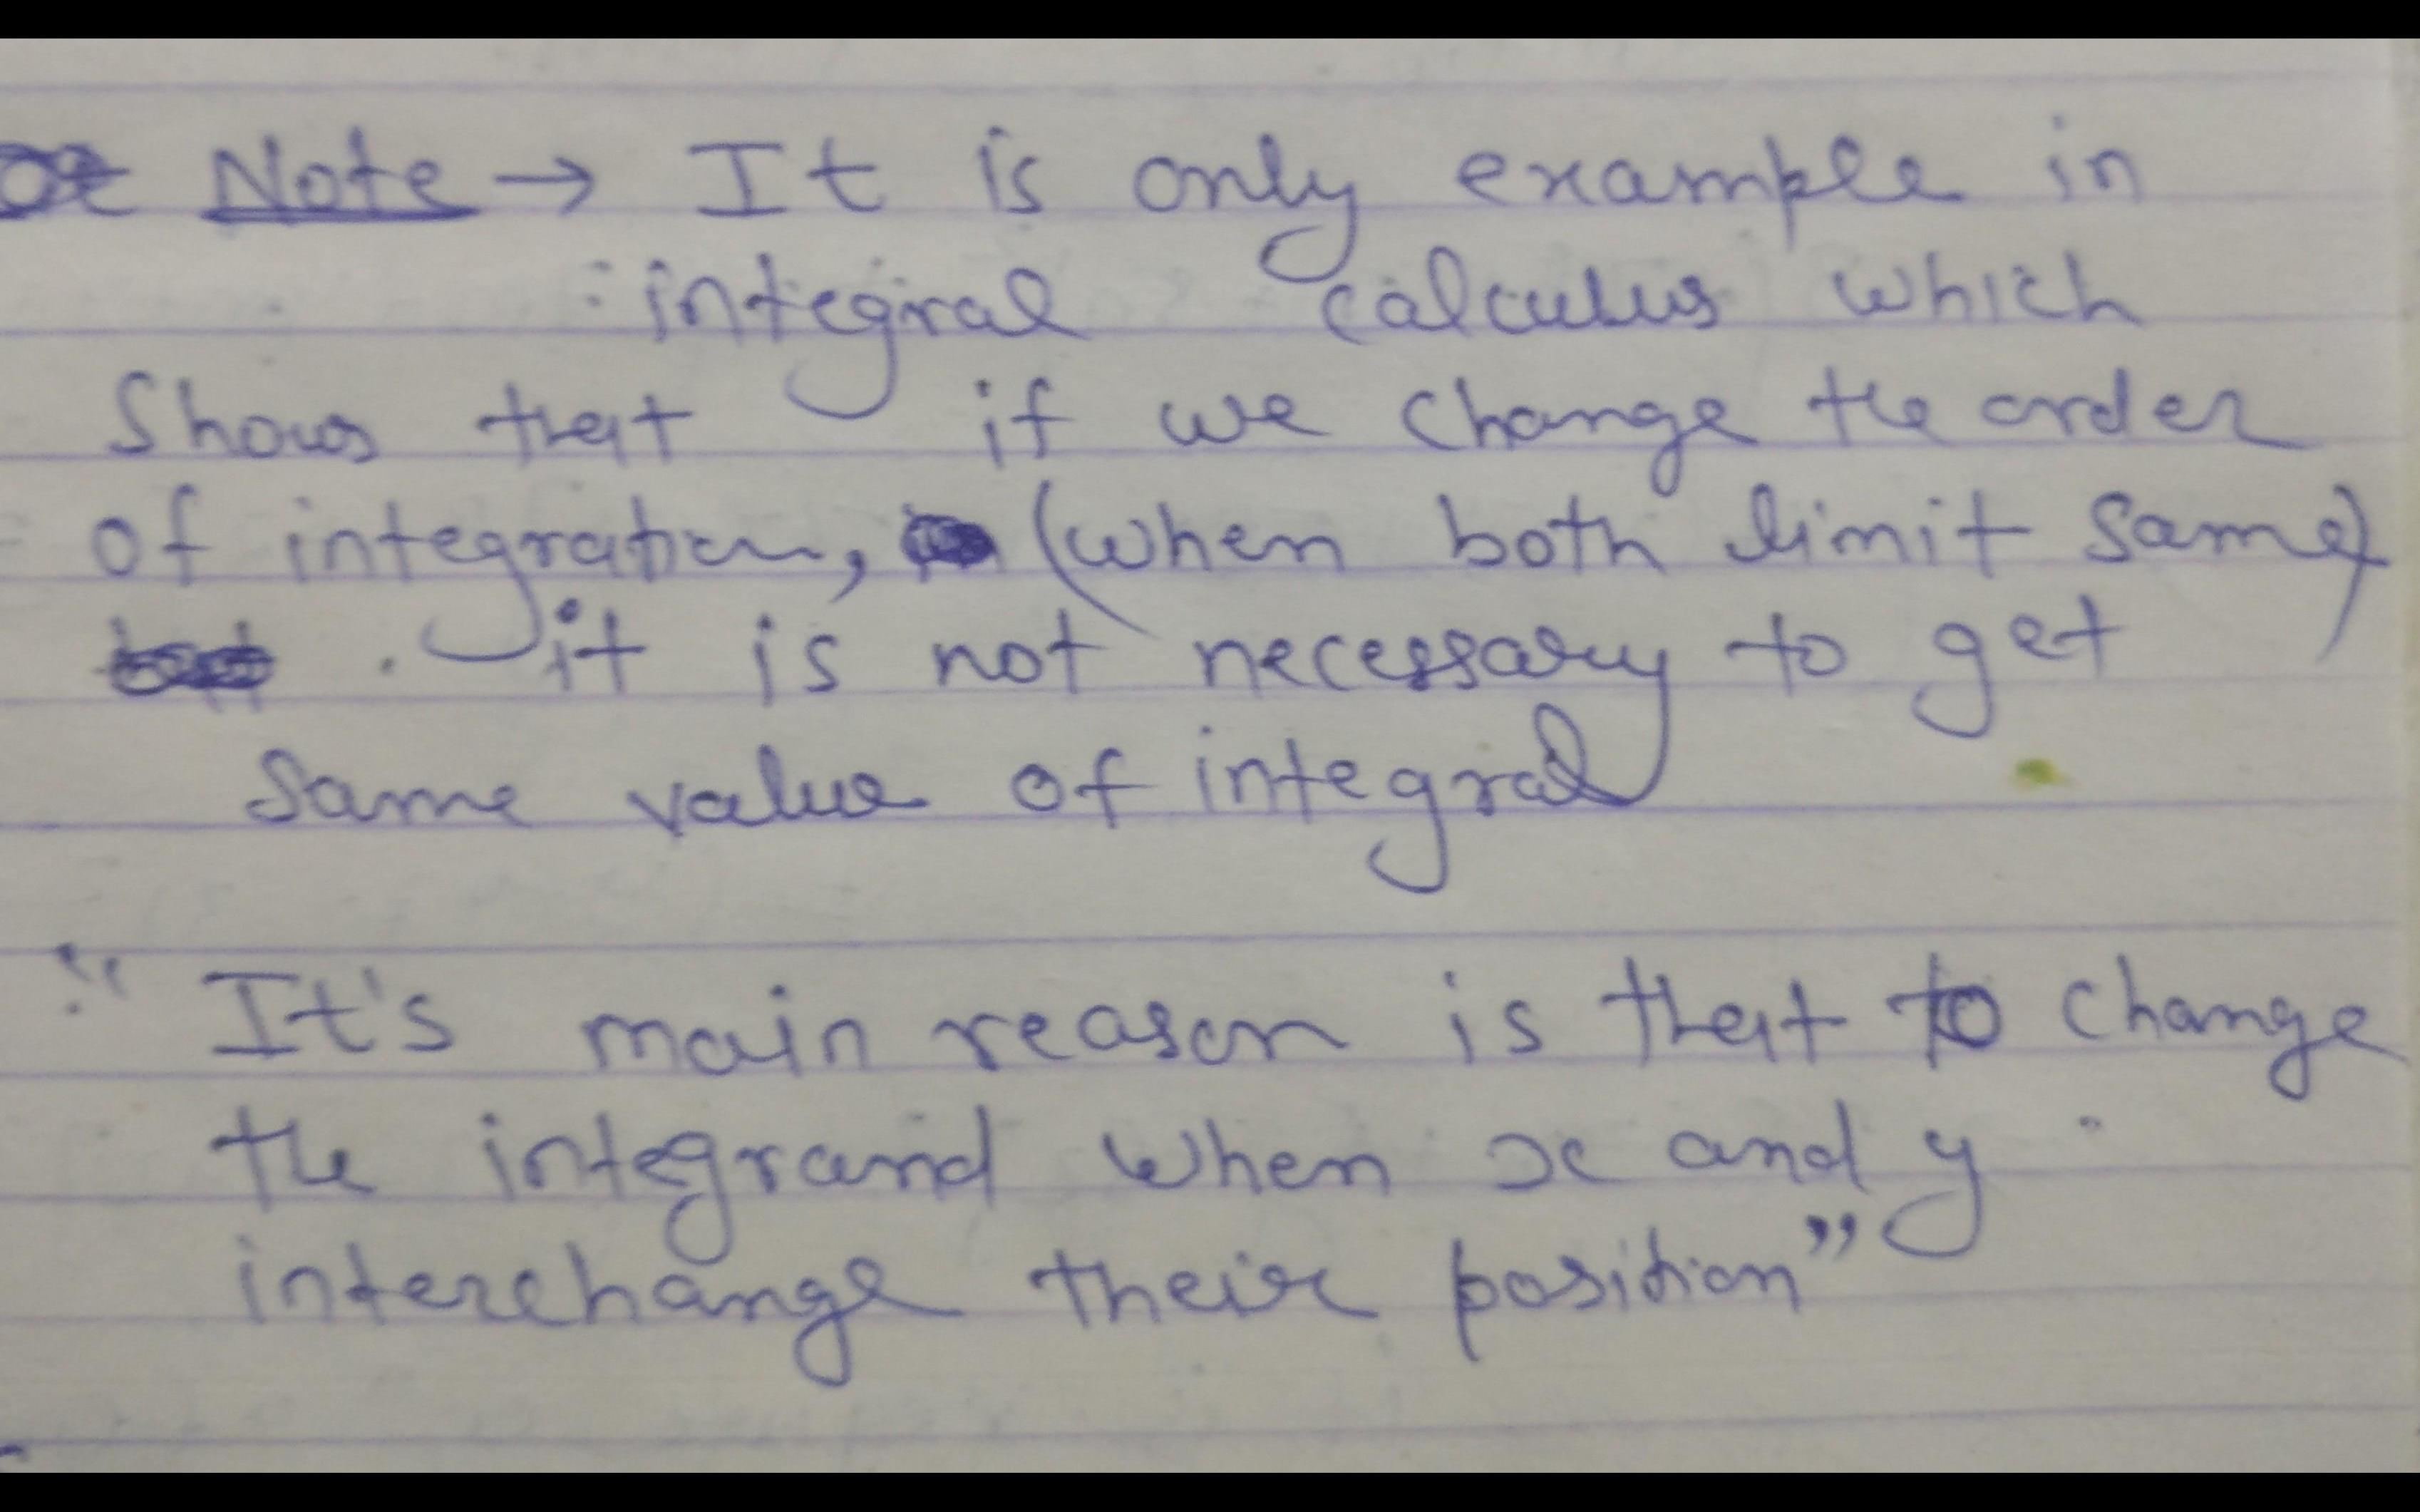 Note → It is only example in
integral calculus which
Shows that if we change the order
of integration, (when both limit same)
it is not necessary to get
Same value of integral
"It's main reason is that to change
the integrand when x and y
interchange their position"